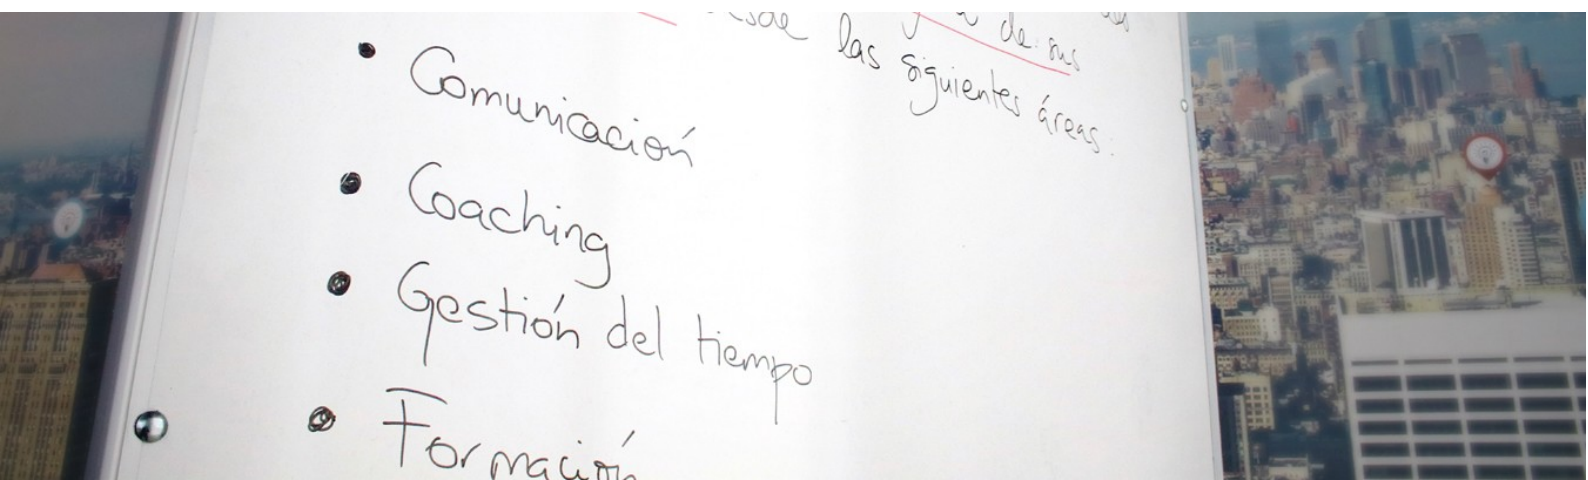 desde las siguientes áreas:
de sus
• Comunicación
• Coaching
• Gestión del tiempo
• Formación